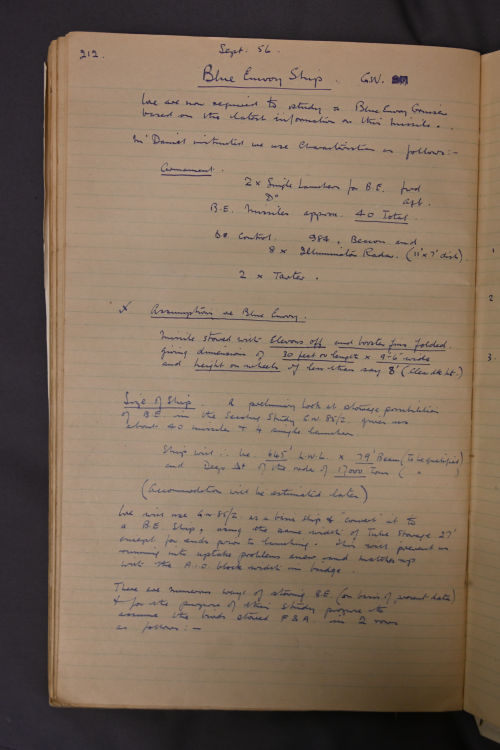 212.
Sept. 56.
Blue Envoy Ship. G.W.
We are now required to study a Blue Envoy Cruiser
based on the latest information on this missile.
Mr Daniel instructed we use Characteristics as follows:-
Armament.
2 x Single Launchers for B.E. fwd
Do aft.
B.E. Missiles approx. 40 Total.
B.E. Control. 984, Beacon and
8 x Illuminator Radar. (11' x 7' dish)
2 x Tartar.
X Assumptions re Blue Envoy.
Missile stowed with Elevons off and booster fins folded.
giving dimensions of 30 feet in length x 9'-6" wide
and height on wheels of less than say 8' (Clear dk ht.)
Size of Ship. A preliminary look at storage possibilities
of B.E. in the Seaslug Study G.W. 85/2. gives us
about 40 missiles & 4 single launchers.
Ship will be 645' L.W.L. x 79' Beam (To be qualified)
and Deep Dt of the order of 17,000 Tons ( " )
(Accommodation will be estimated later)
We will use G.W. 85/2 as a basis ship & "convert" it to
a B.E. Ship, using the same width of Tube Storage 27'
except for ends prior to launching. This will prevent us
running into uptake problems anew and matches up
with the A.I.O. block width in bridge.
There are numerous ways of storing B.E. (on basis of present data)
& for the purpose of this Study propose to
assume the birds stowed F & A in 2 rows
as follows:-
1
2
3.